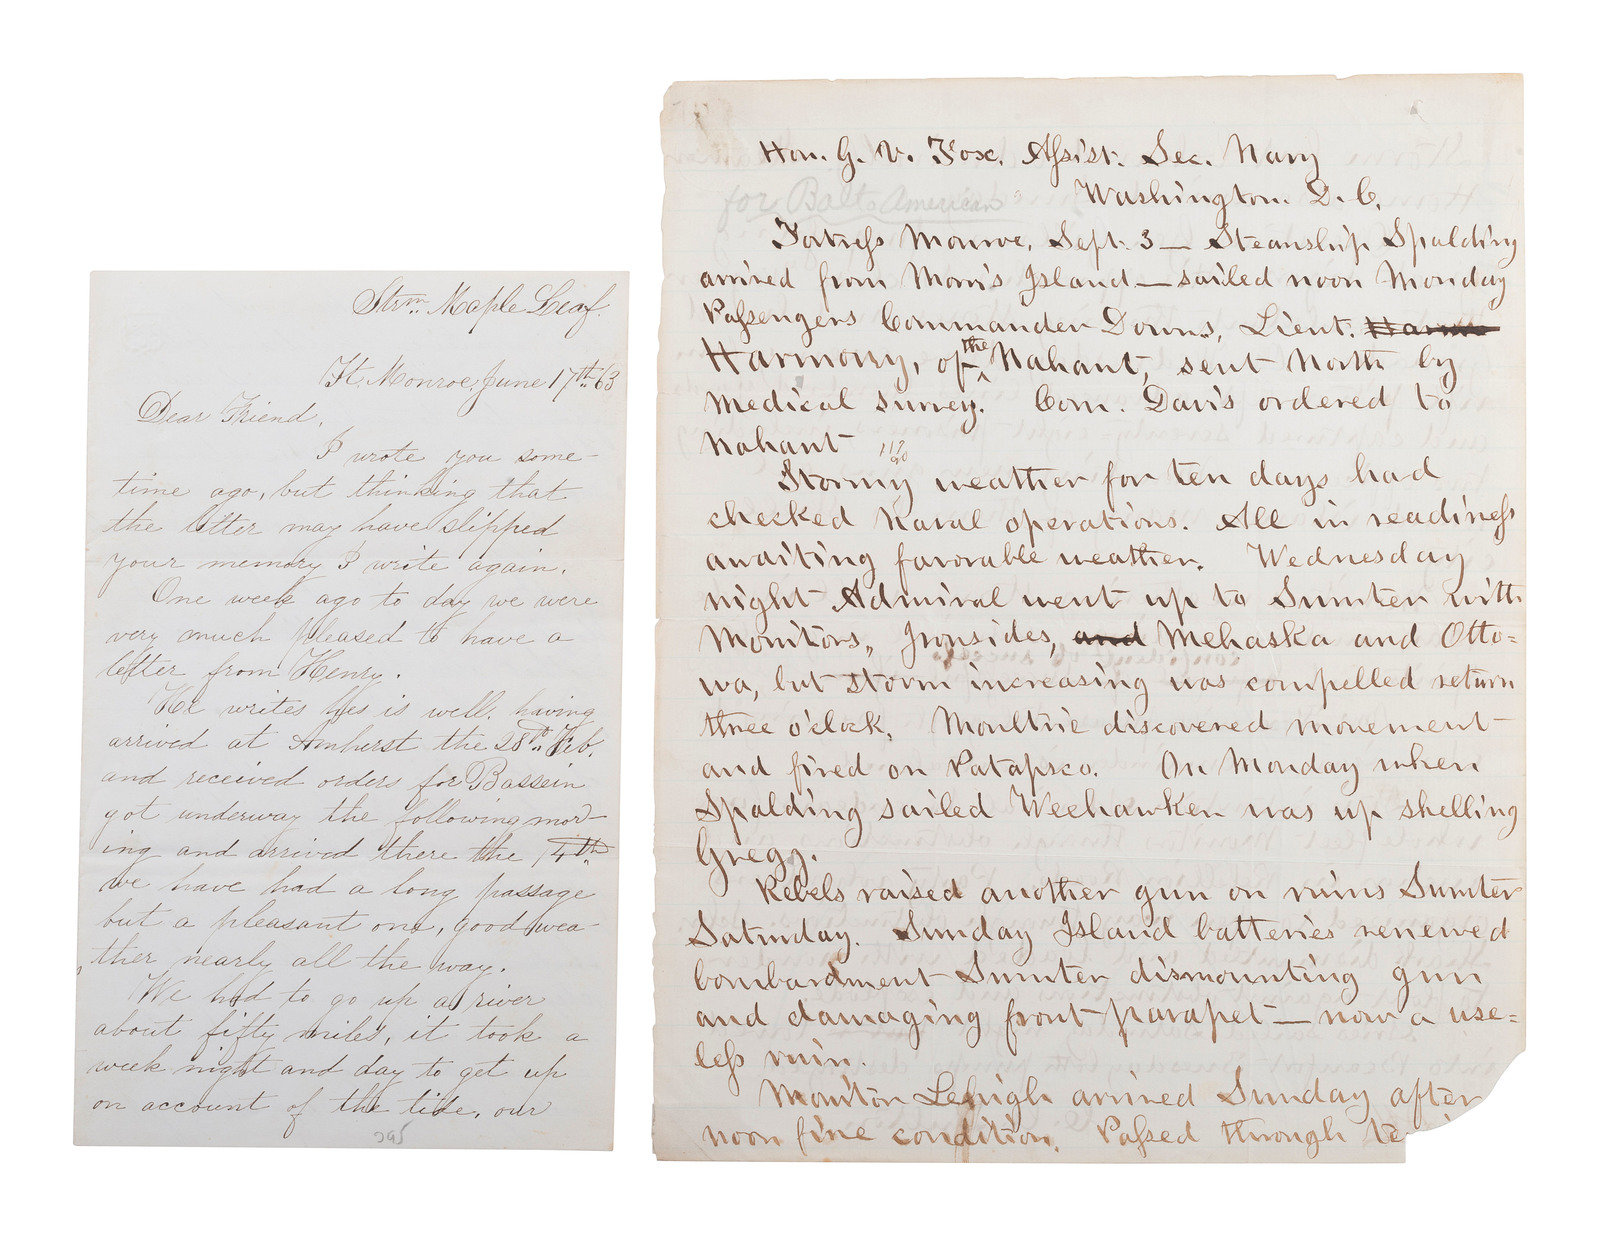 Strm. Maple Leaf.
Ft. Monroe, June 17th 63
Dear Friend,
I wrote you some-
time ago, but thinking that
the letter may have slipped
your memory I write again.
One week ago to day we were
very much pleased to have a
letter from Henry.
He writes hes is well. having
arrived at Amherst the 28th Feb.
and received orders for Bassein
got underway the following mor-
ing and arrived there the 14th
we have had a long passage
but a pleasant one, good wea-
ther nearly all the way.
We had to go up a river
about fifty miles, it took a
week night and day to get up
on account of the tide, our
295
Hon. G. V. Fox, Assist. Sec. Navy
Washington. D. C.
for Balto American
Fortress Monroe, Sept. 3 — Steamship Spalding
arrived from Morris Island — sailed noon Monday
Passengers Commander Downs, Lieut.
Harmony, of the Nahant, sent North by
medical survey. Com. Davis ordered to
Nahant
Stormy weather for ten days had
checked Naval operations. All in readiness
awaiting favorable weather. Wednesday
night Admiral went up to Sumter with
Monitors, Ironsides, and Mehaska and Otto=
wa, but storm increasing was compelled return
three o'clock. Moultrie discovered movement
and fired on Patapsco. On Monday when
Spalding sailed Weehawken was up shelling
Gregg.
Rebels raised another gun on ruins Sumter
Saturday. Sunday Island batteries renewed
bombardment Sumter dismounting gun
and damaging front parapet — now a use=
less ruin.
Monitor Lehigh arrived Sunday after
noon fine condition. Passed through